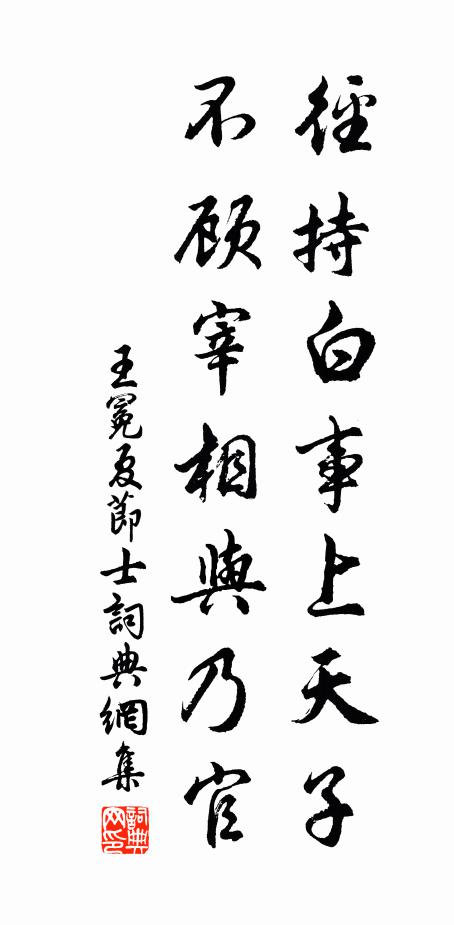 徑持白事上天子
不顧宰相與乃官
王冕夏節士詞典網集
詞典網印